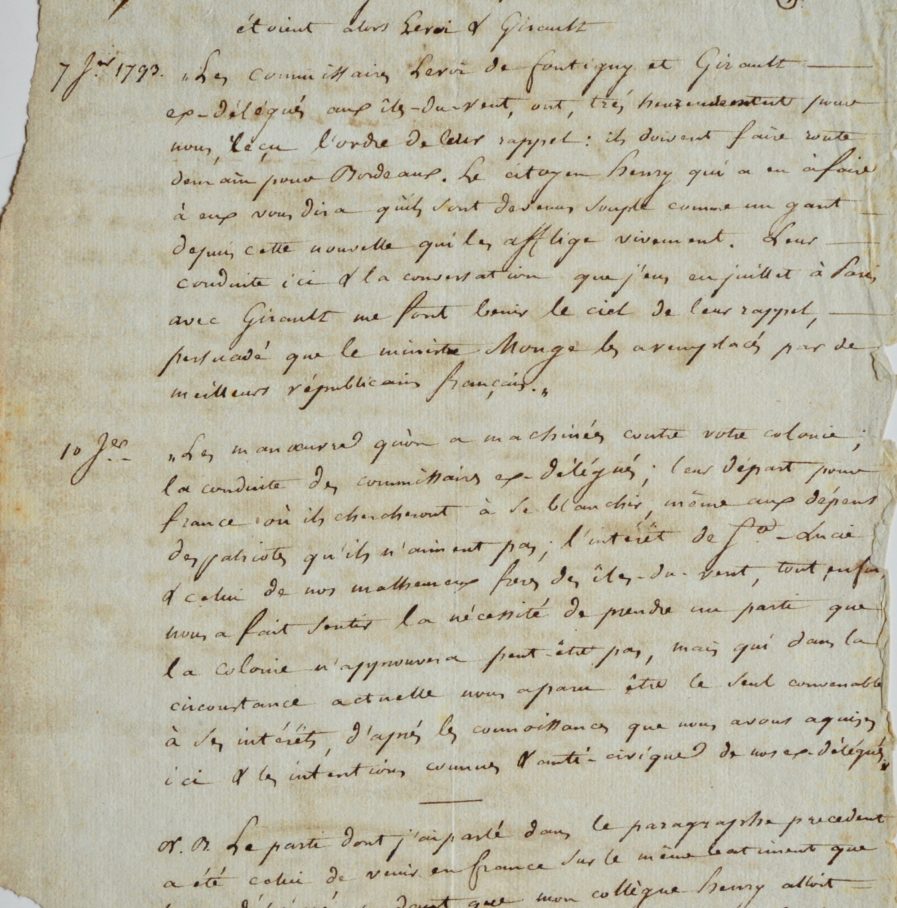 étoient alors Leroi & Girault
7 Jer 1793. "Les commissaires Leroi de fontigny et Girault
ex-délégués aux îles-du-vent, ont, très heureusement pour
nous, reçu l'ordre de leur rappel : ils doivent faire route
demain pour Bordeaux. Le citoyen henry qui a eu à faire
à eux vous dira qu'ils sont devenus souple comme un gant
depuis cette nouvelle qui les afflige vivement. Leur
conduite ici & la conversation que j'eus en juillet à Paris
avec Girault me font benir le ciel de leur rappel,
persuadé que le ministre Monge les a remplacés par de
meilleurs républicains français."
10 Jer "Les manœuvres qu'on a machinées contre votre colonie ;
la conduite des commissaires ex-délégués ; leur départ pour
france où ils chercheront à se blanchir, même aux dépens
des patriotes qu'ils n'aiment pas ; l'intérêt de Ste-Lucie
& celui de nos malheureux freres des îles-du-vent, tout enfin,
nous a fait sentir la nécessité de prendre un parti que
la colonie n'approuvera peut-être pas, mais qui dans la
circonstance actuelle nous a paru être le seul convenable
à ses intérêts, d'après les connoissances que nous avons aquises
ici & les intentions connues & anti-civiques de nos ex-délégués.
N. B. Le parti dont j'ai parlé dans le paragraphe precedent
a été celui de venir en france sur le même batiment que
dont que mon collègue henry alloit